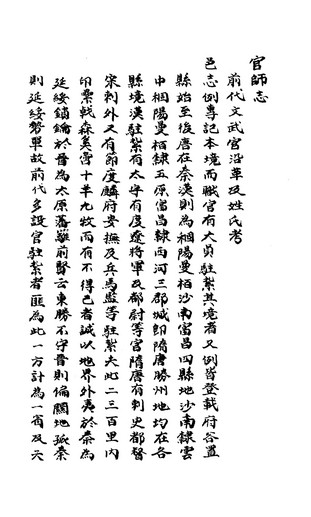 官師志
前代文武官沿革及姓氏考
邑志例專記本境而職官有大員駐紮其境者又例皆登載府谷置
縣始至後唐在秦漢則為稒陽曼栢沙南富昌四縣地沙南隸雲
中稒陽曼栢隸五原富昌隸西河三郡城即隋唐勝州地均在各
縣境漢駐紮有太守有度遼將軍及都尉等官隋唐有刺史都督
宋刺外又有節度麟府安撫及兵馬監等駐紮夫此二三百里內
印綮戟森奚啻十羊九牧而有不得已者誠以地界外夷於秦為
延綏鎖鑰於晉為太原藩籬前賢云東勝不守晉則偏關地孤秦
則延綏勢單故前代多設官駐紮者匪為此一方計為一省及天